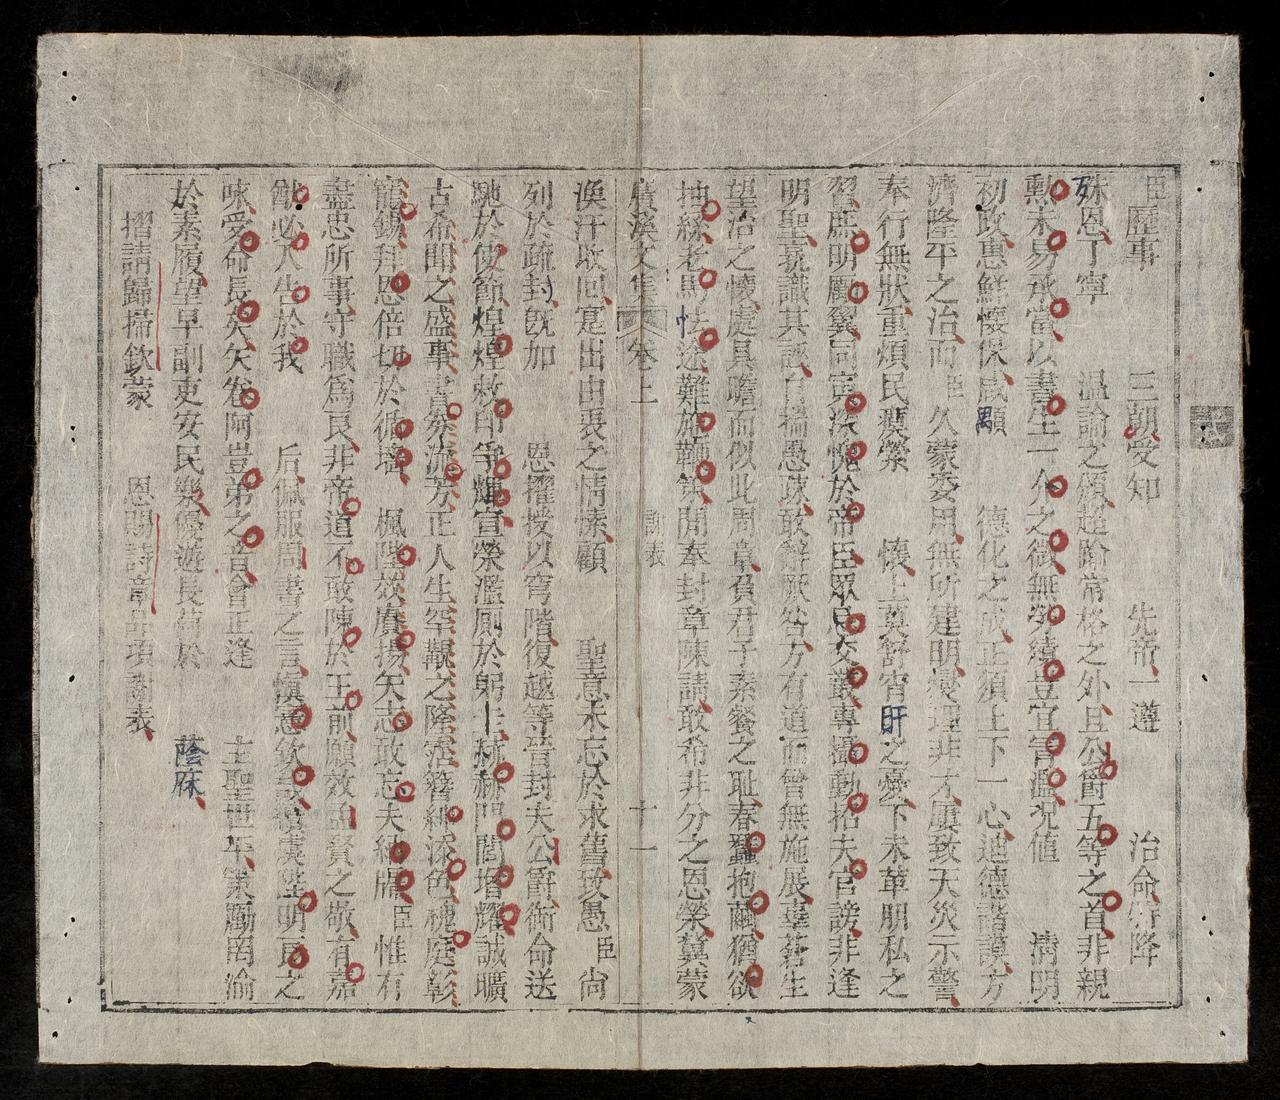 臣歷事　三朝受知　先帝一遵　治命特降
殊恩丁寧　温諭之頒超踰常格之外且公爵五等之首非親
勲未易承當以書生一介之微無勞績豈宜宜濫况値　清明
初政惠鮮懷保咸顒　德化之成正須上下一心迪德諧謨方
濟隆平之治而臣久蒙委用無所建明燮理非才屢致天災示警
奉行無狀重煩民瘼縈　懷上莫舒宵旰之憂下未革朋私之
習庶明勵翼同寅深愧於帝臣眾民交叢專擅動招夫官謗非逢
明聖孰識其誠自揣愚疎敢辭厥咎方有道而曾無施展辜蒼生
望治之懷處具瞻而似此周章負君子素餐之耻春蠶抱繭猶欲
抽絲老馬怯途難施鞭策閒奉封章陳請敢希非分之恩榮冀蒙
廣溪文集　卷上　謝表　十一
渙汗收回寔出由衷之情愫顧　聖意未忘於求舊致愚臣尚
列於疏封旣加　恩擢授以穹階復越等晉封夫公爵銜命送
馳於使節煌煌敕印爭輝宣榮濫厠於躬圭赫赫門閭增耀誠曠
古希聞之盛事書券流芳正人生罕覯之隆霑簪紳添色禮庭彰
寵錫拜恩倍切於循墻　楓陛效賡揚矢志敢忘夫納牖臣惟有
盡忠所事守職爲艮非帝道不敢陳於王前願效孟賢之敬有嘉
猷必入告於我　后佩服周書之言愼憲欽哉續虞陛明良之
咏受命長矣矢卷阿豈弟之音會正逢　主聖世平策勵罔渝
於素履望早副吏安民樂優遊長荷於　蔭庥
摺請歸掃欽蒙　恩賜詩章品項謝表